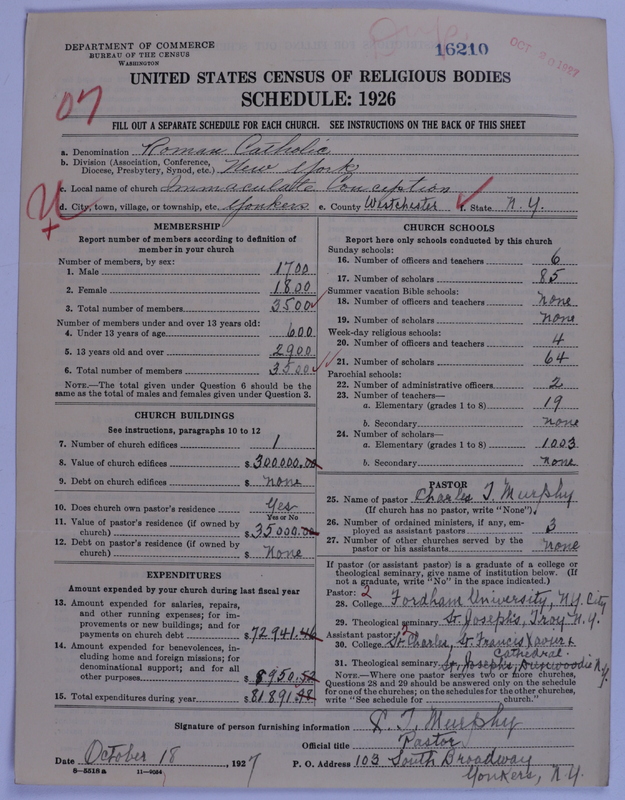 DEPARTMENT OF COMMERCE
BUREAU OF THE CENSUS
WASHINGTON
16210
OCT 20 1927
UNITED STATES CENSUS OF RELIGIOUS BODIES
SCHEDULE: 1926
07
FILL OUT A SEPARATE SCHEDULE FOR EACH CHURCH. SEE INSTRUCTIONS ON THE BACK OF THIS SHEET
a. Denomination Roman Catholic
b. Division (Association, Conference, Diocese, Presbytery, Synod, etc.) New York
c. Local name of church Immaculate Conception
d. City, town, village, or township, etc. Yonkers e. County Westchester f. State N.Y.
MEMBERSHIP
Report number of members according to definition of member in your church
Number of members, by sex:
1. Male 1700
2. Female 1800
3. Total number of members 3500
Number of members under and over 13 years old:
4. Under 13 years of age 600
5. 13 years old and over 2900
6. Total number of members 3500
NOTE.—The total given under Question 6 should be the same as the total of males and females given under Question 3.
CHURCH BUILDINGS
See instructions, paragraphs 10 to 12
7. Number of church edifices 1
8. Value of church edifices $300000.00
9. Debt on church edifices $ none
10. Does church own pastor's residence? Yes
Yes or No
11. Value of pastor's residence (if owned by church) $35000.00
12. Debt on pastor's residence (if owned by church) $ None
EXPENDITURES
Amount expended by your church during last fiscal year
13. Amount expended for salaries, repairs, and other running expenses; for improvements or new buildings; and for payments on church debt $72941.46
14. Amount expended for benevolences, including home and foreign missions; for denominational support; and for all other purposes $8950.52
15. Total expenditures during year $81891.98
CHURCH SCHOOLS
Report here only schools conducted by this church
Sunday schools:
16. Number of officers and teachers 6
17. Number of scholars 85
Summer vacation Bible schools:
18. Number of officers and teachers none
19. Number of scholars none
Week-day religious schools:
20. Number of officers and teachers 4
21. Number of scholars 64
Parochial schools:
22. Number of administrative officers 2
23. Number of teachers—
a. Elementary (grades 1 to 8) 19
b. Secondary none
24. Number of scholars—
a. Elementary (grades 1 to 8) 1003
b. Secondary none
PASTOR
25. Name of pastor Charles T. Murphy
(If church has no pastor, write "None")
26. Number of ordained ministers, if any, employed as assistant pastors 3
27. Number of other churches served by the pastor or his assistants none
If pastor (or assistant pastor) is a graduate of a college or theological seminary, give name of institution below. (If not a graduate, write "No" in the space indicated.)
Pastor: 2
28. College Fordham University, N.Y. City
29. Theological seminary St. Joseph's, Troy N.Y.
Assistant pastor: 2
30. College St. Charles, St. Francis Xavier &
Cathedral.
31. Theological seminary St. Joseph's Dunwoodie N.Y.
NOTE.—Where one pastor serves two or more churches, Questions 28 and 29 should be answered only on the schedule for one of the churches; on the schedules for the other churches, write "See schedule for church."
Signature of person furnishing information C. T. Murphy
Official title Pastor
Date October 18, 1927 P. O. Address 103 South Broadway
Yonkers, N.Y.
8—5518a 11—9084